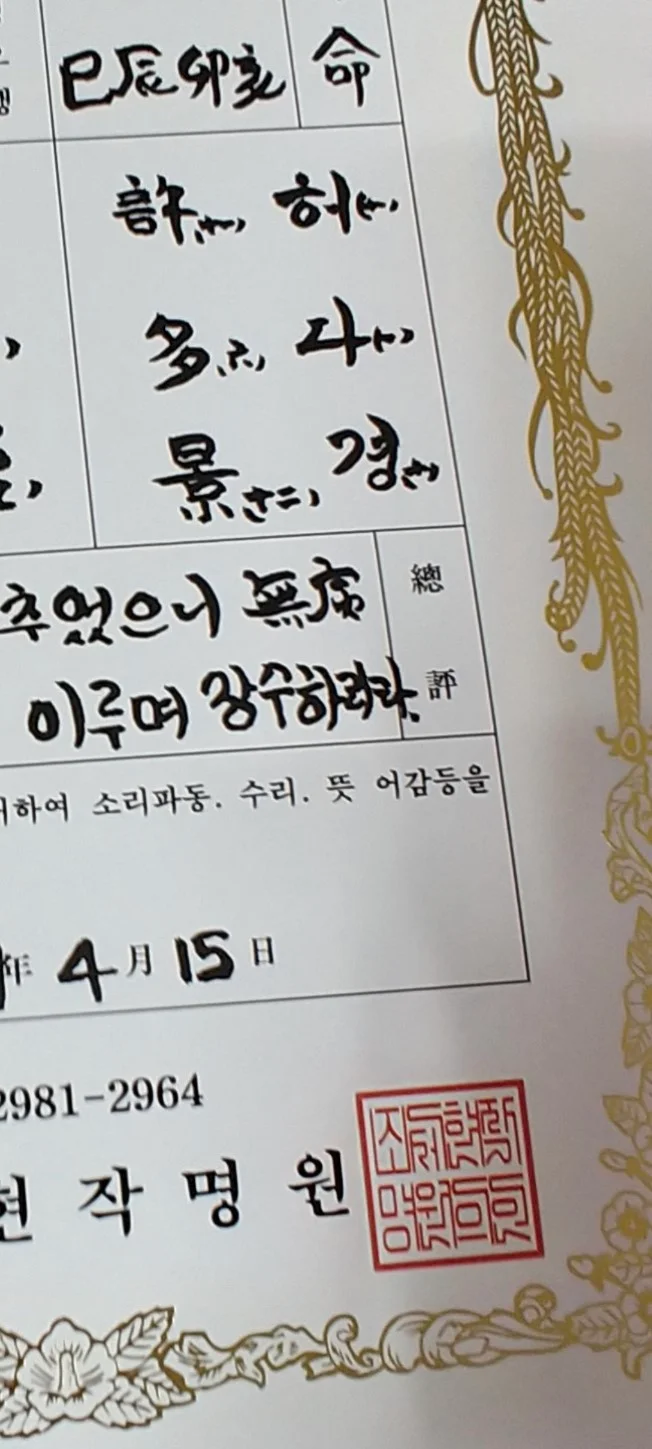 巳辰卯亥 命
許 허
多 다
景 경
추었으니 無病 總
이루며 장수하리라. 評
하여 소리파동. 수리. 뜻 어감등을
年 4 月 15 日
2981-2964
현 작 명 원